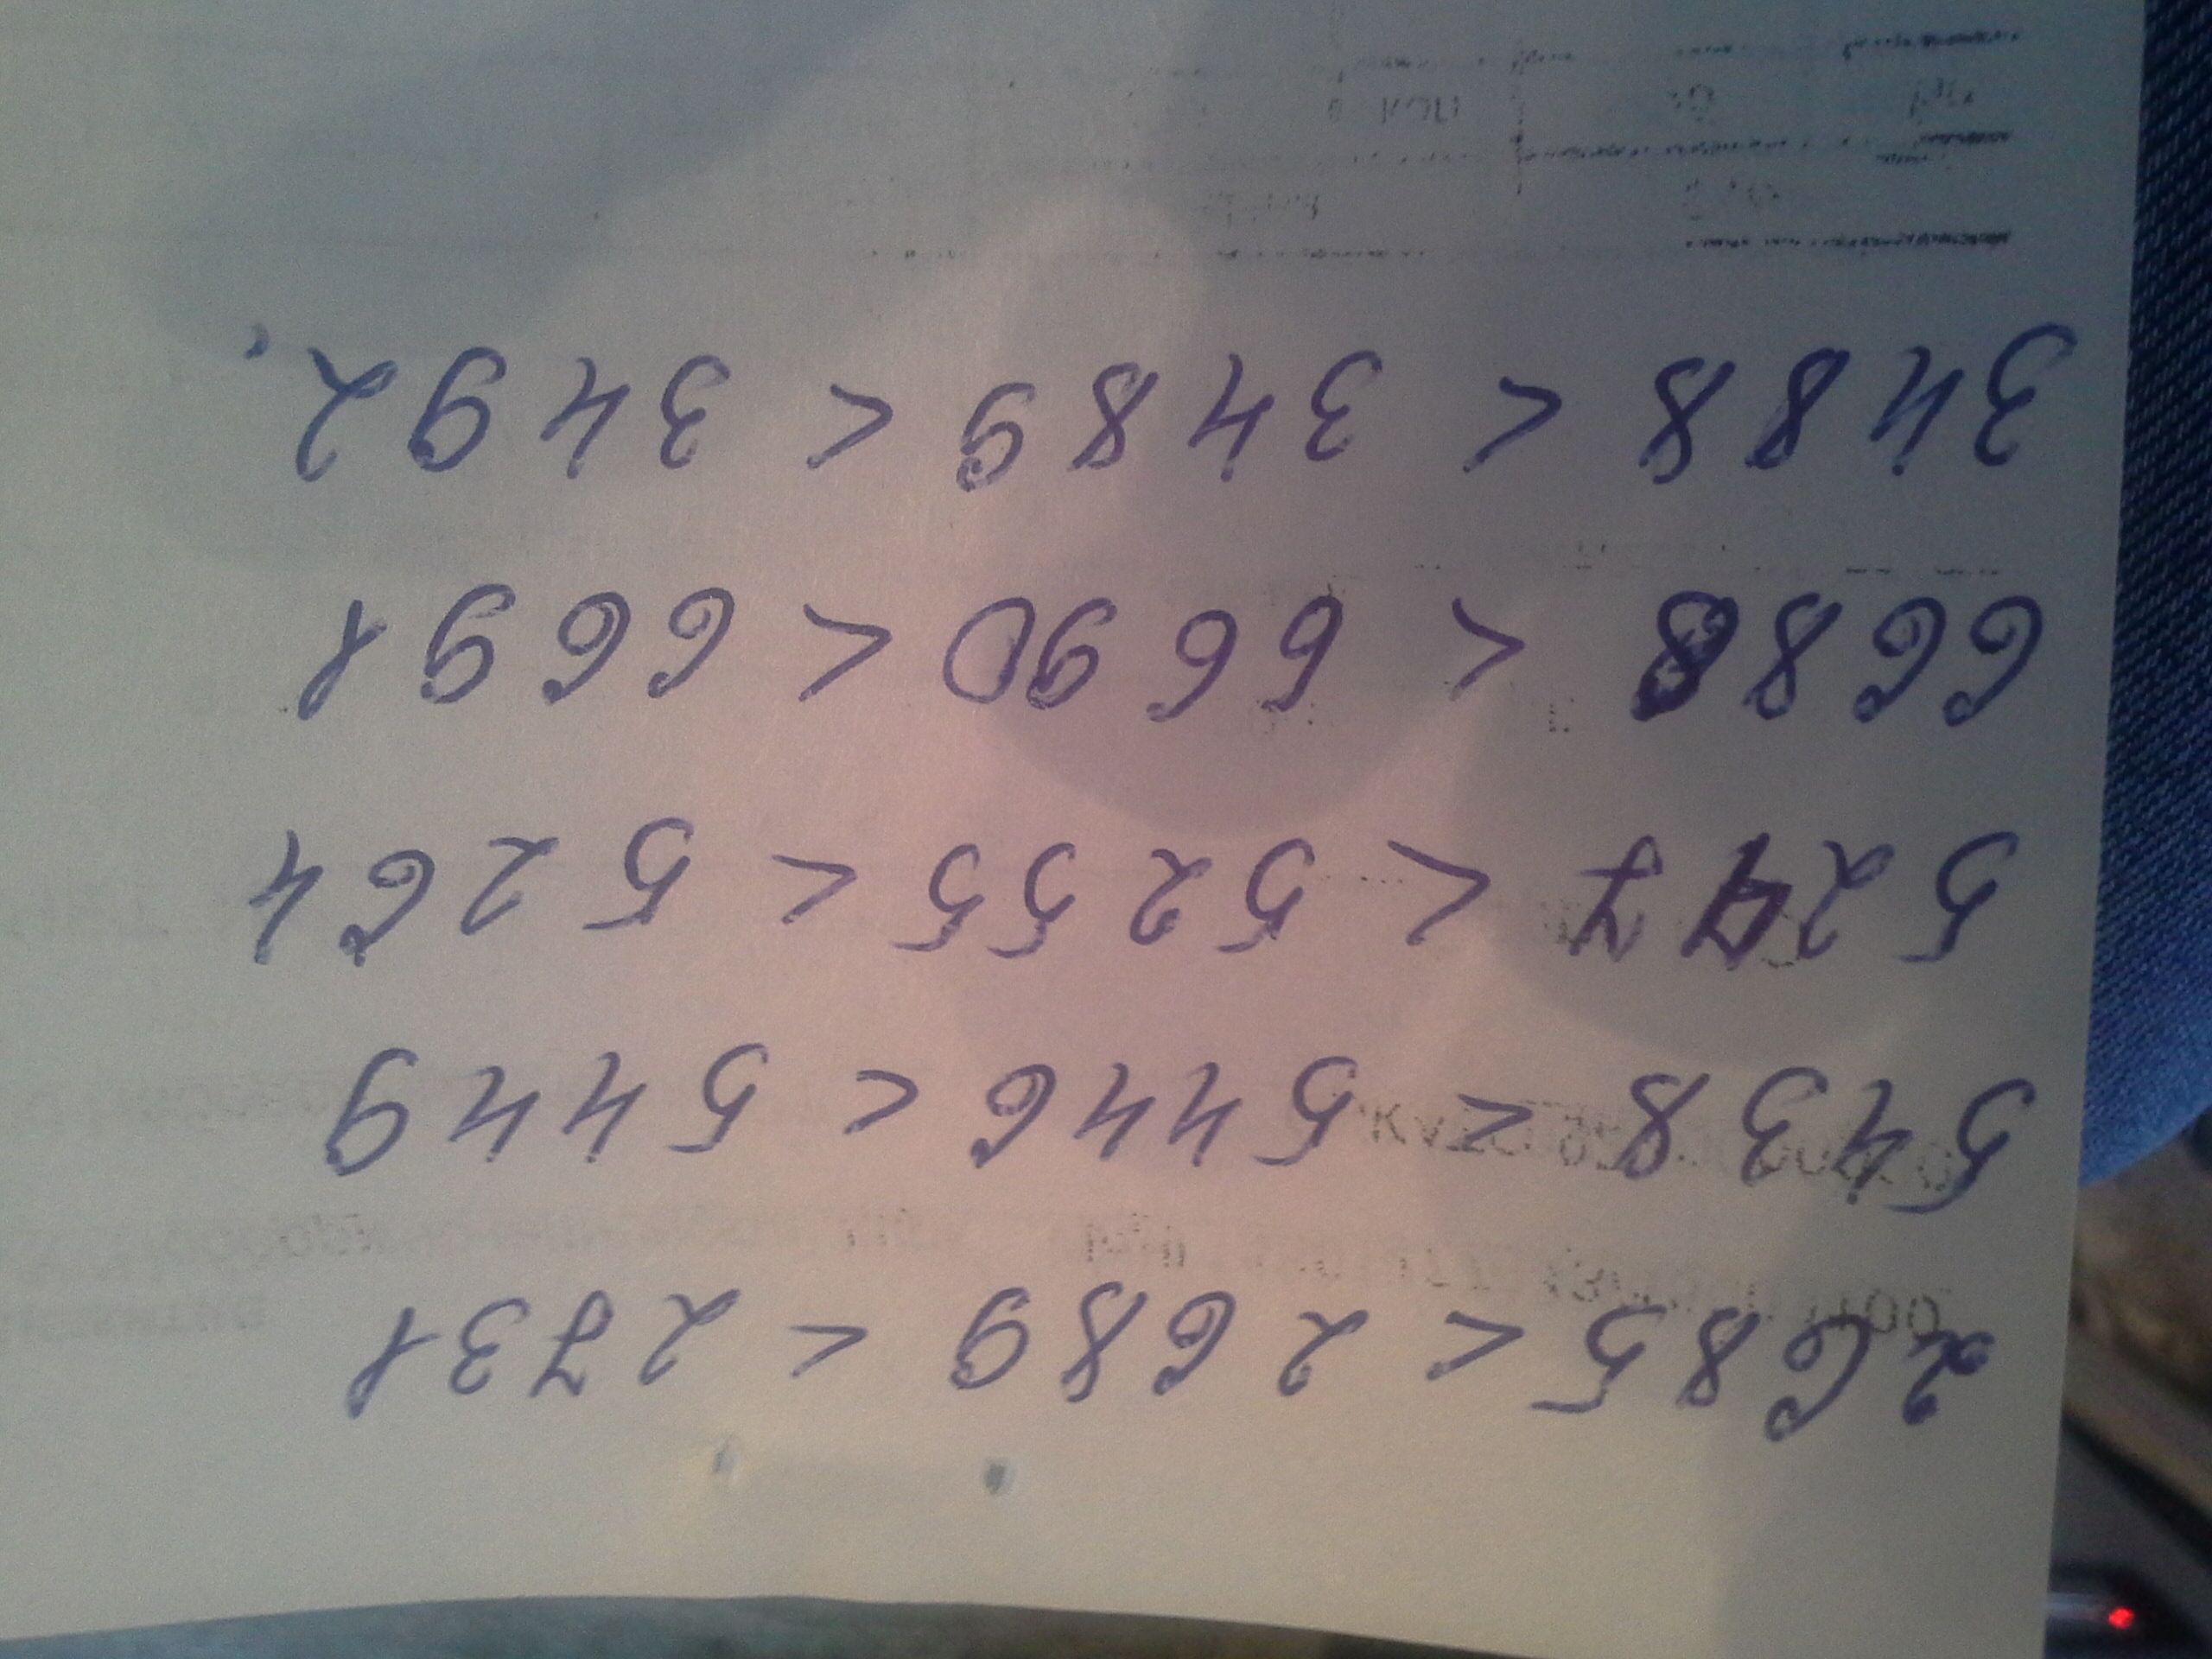 2685 < 2689 < 2731
5438 < 5446 < 5449
5247 < 5255 < 5264
6688 < 6690 < 6691
3488 < 3489 < 3492.